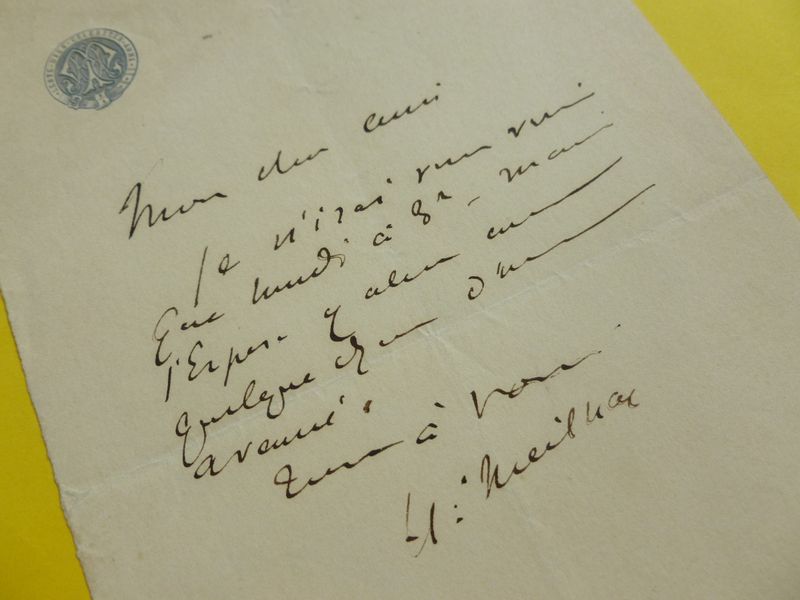 Mon cher ami
Je n'irai vous voir
que lundi à 3h - mais
j'espère y aller avec
quelque chose d'assez
avancé.
Tout à vous
H: Meilhac